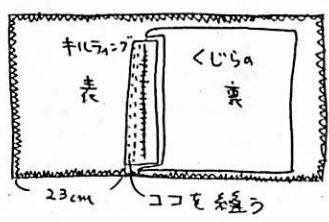 キルティング
表
くじらの
裏
23cm
ココを縫う